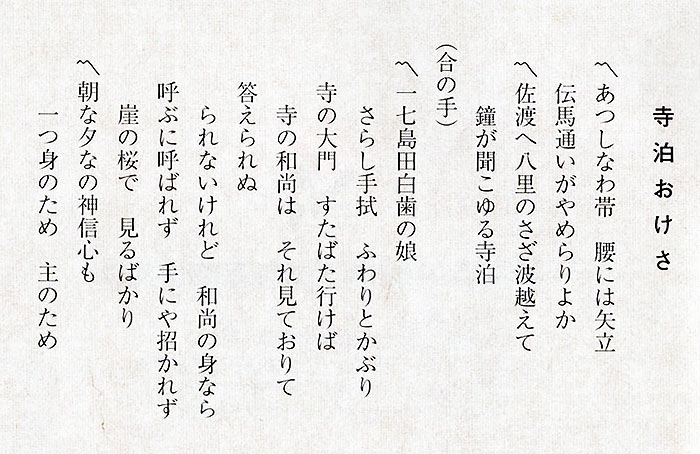 寺泊おけさ
〽あつしなわ帯　腰には矢立
伝馬通いがやめらりよか
〽佐渡へ八里のさざ波越えて
鐘が聞こゆる寺泊
（合の手）
〽一七島田白歯の娘
さらし手拭　ふわりとかぶり
寺の大門　すたばた行けば
寺の和尚は　それ見ておりて
答えられぬ
られないけれど　和尚の身なら
呼ぶに呼ばれず　手にや招かれず
崖の桜で　見るばかり
〽朝な夕なの神信心も
一つ身のため　主のため